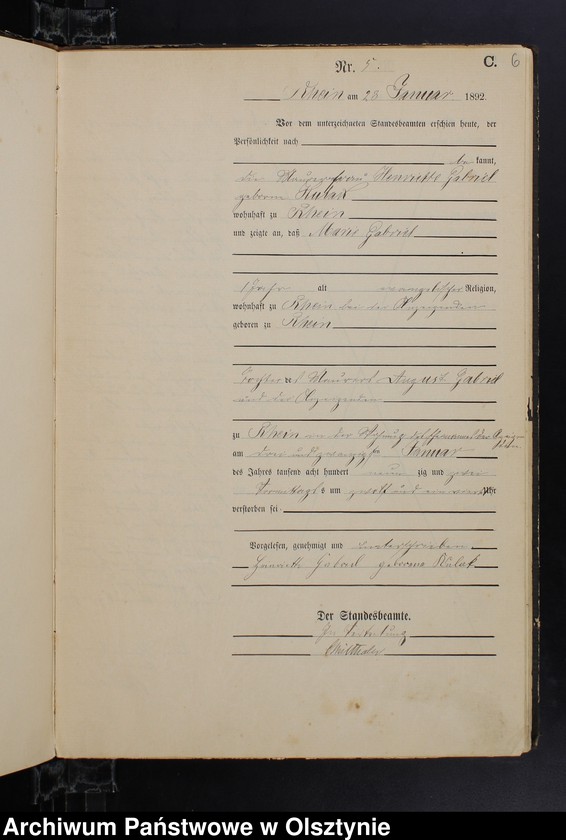 C. 6
Nr. 5.
Rhein am 23 Januar 1892.
Vor dem unterzeichneten Standesbeamten erschien heute, der
Persönlichkeit nach
be kannt,
die Maurerfrau Henriette Gabriel
geborene Kulak
wohnhaft zu Rhein
und zeigte an, daß Marie Gabriel
1 Jahr alt evangelischer Religion,
wohnhaft zu Rhein bei der Anzeigenden
geboren zu Rhein
Tochter des Maurers August Gabriel
und der Anzeigenden
zu Rhein in der Wohnung der
am drei und zwanzigsten Januar
des Jahres tausend acht hundert neun zig und zwei
Vormittags um zwölf und ein Uhr
verstorben sei.
Vorgelesen, genehmigt und unterschrieben
Henriette Gabriel geborene Kulak
Der Standesbeamte.
In Vertretung
Archiwum Państwowe w Olsztynie